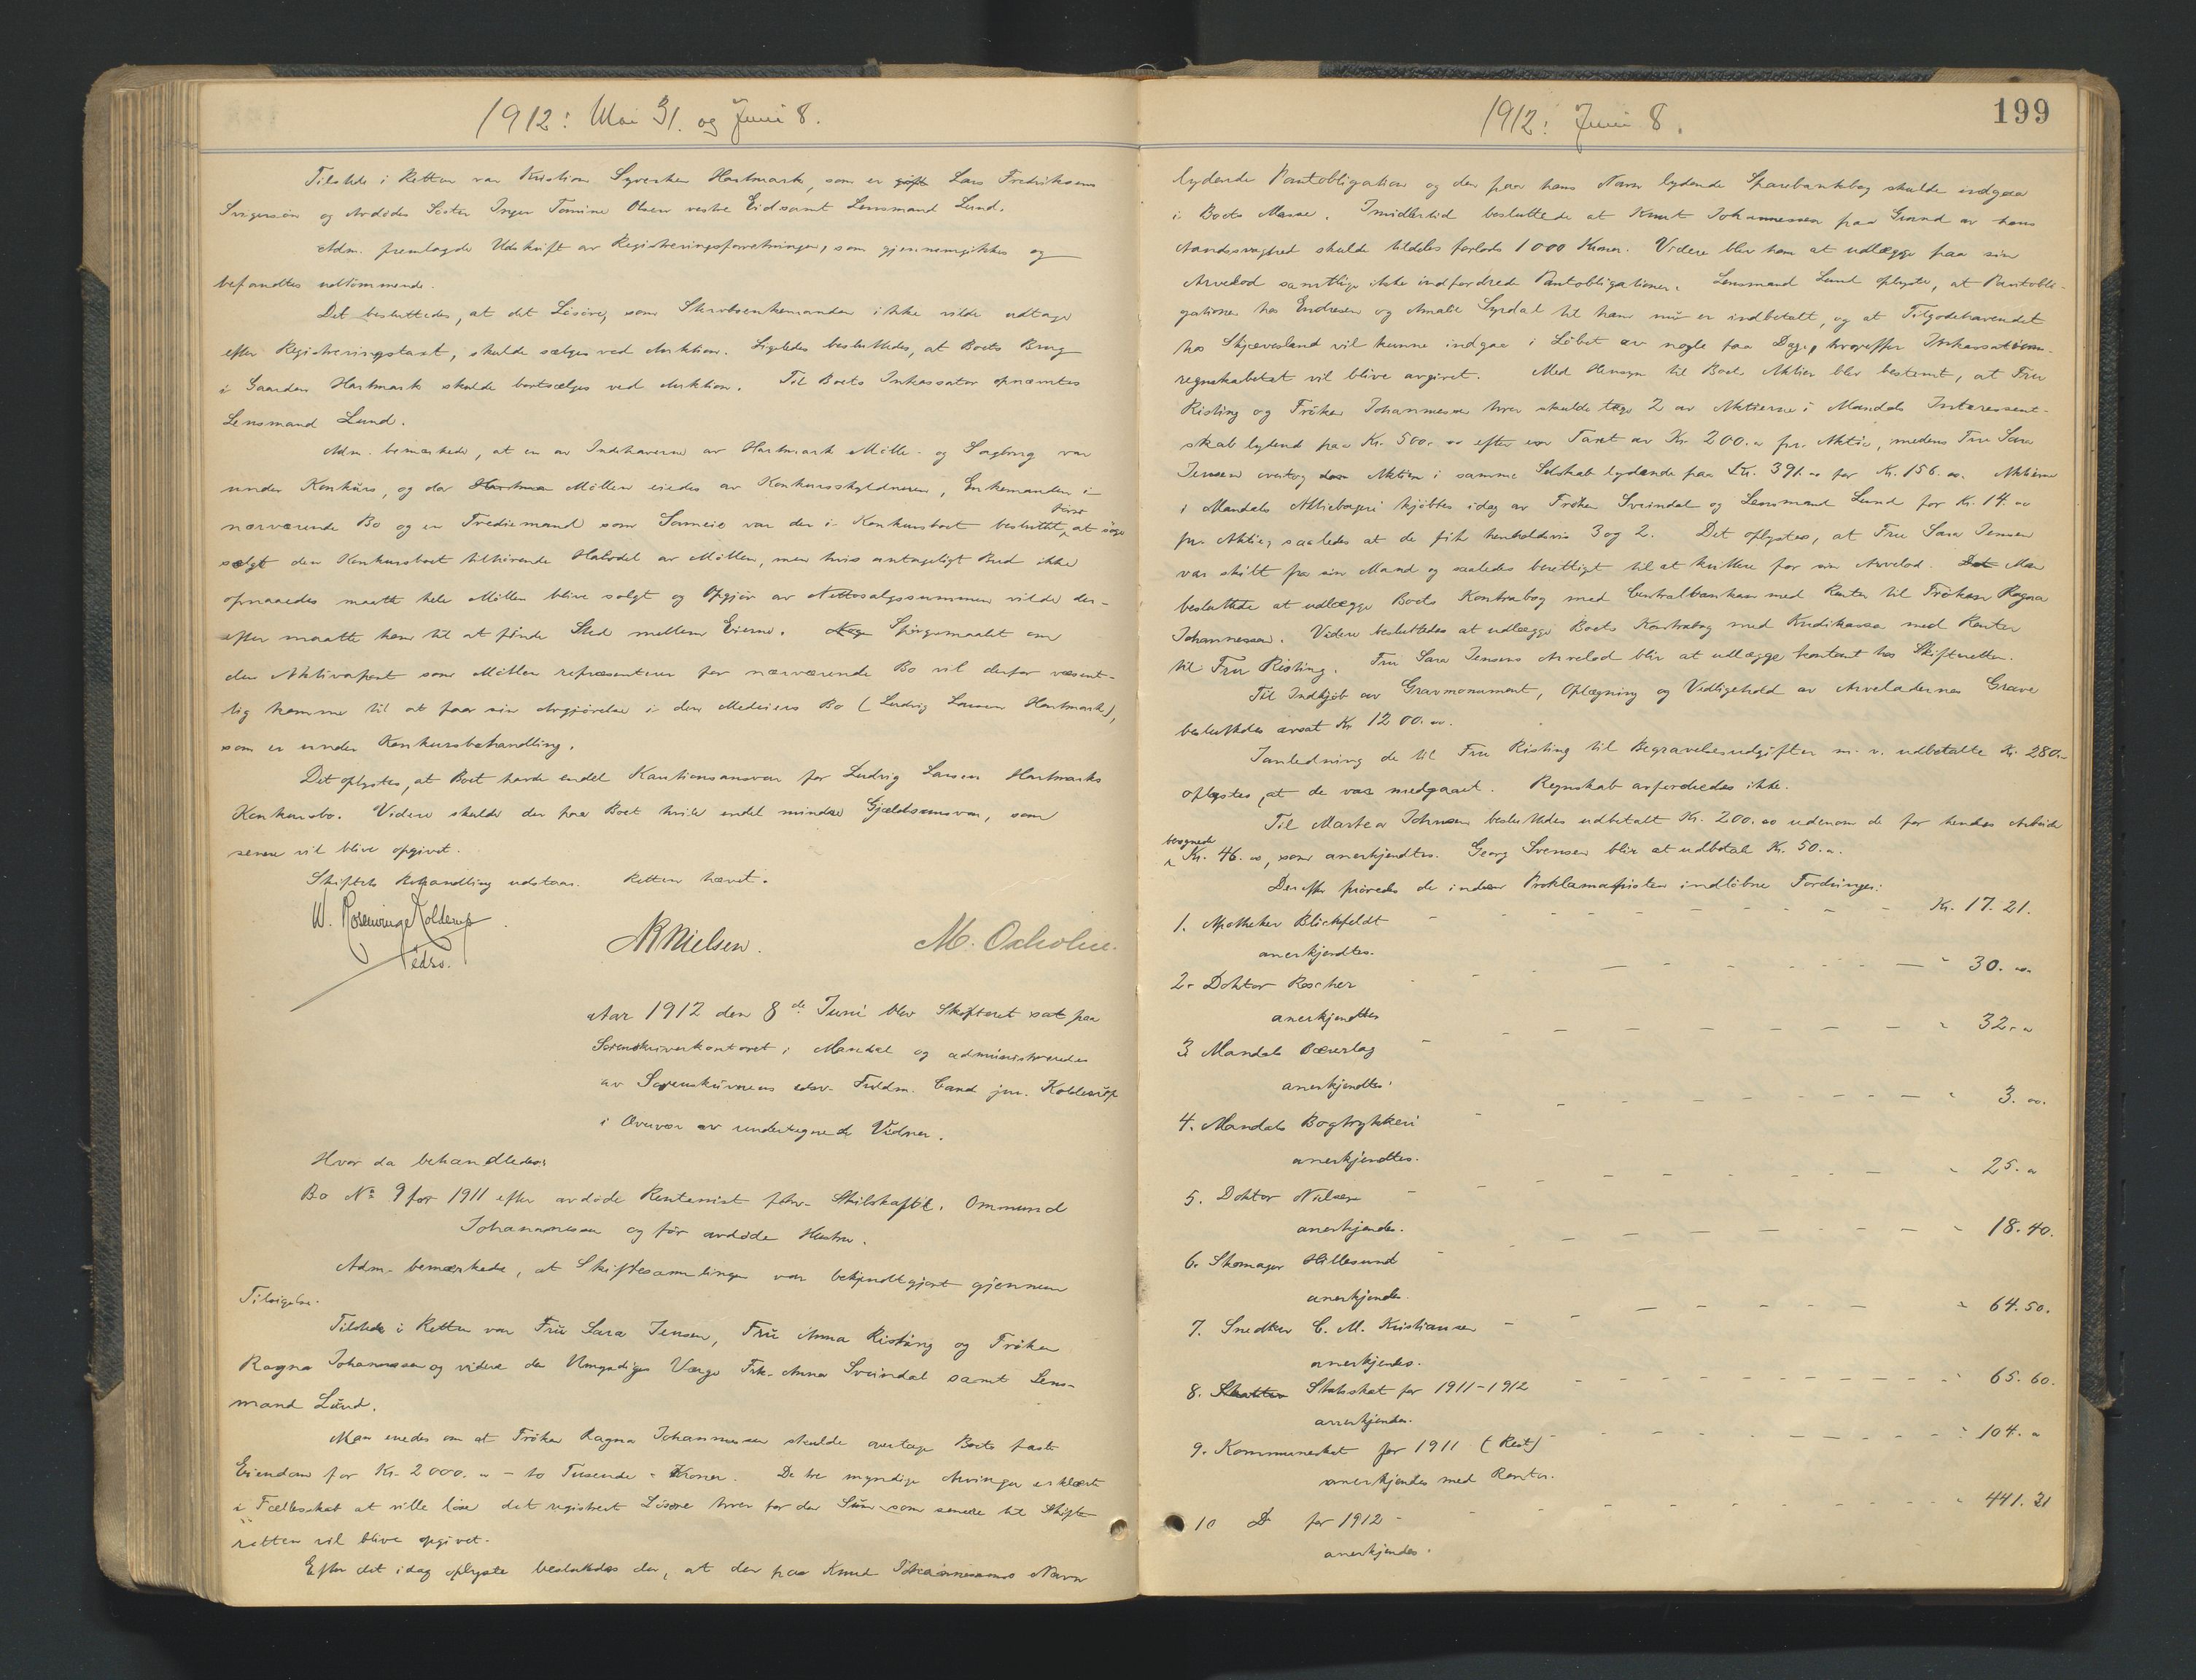 1912: Mai 31. og Juni 8.
Tilstede i Retten var Kristian Syvertsen Hartmark, som er gift Lars Fredriksens
Svigersøn og Avdødes Søster Inger Tomine Olsen vestre Eid samt Lensmand Lund.
Adm. fremlagde Udskrift av Registreringsforretningen, som gjennemgikkes og
befandtes udtømmende.
Det besluttedes, at det Løsøre, som Stervboenkemanden ikke vilde udtage
efter Registreringstaxt, skulde sælges ved Auktion. Ligeledes besluttedes, at Boets Brug
i Gaarden Hartmark skulde bortsælges ved Auktion. Til Boets Inkassator opnævntes
Lensmand Lund.
Adm. bemærkede, at en av Indehaverne av Hartmark Mølle- og Sagbrug var
under Konkurs, og da Møllen eiedes av Konkursskyldneren, Enkemanden i
nærværende Bo og en Trediemand som Sameie var der i Konkursboet besluttet, først at søge
sælgt den Konkursboet tilhørende Halvdel av Møllen, men hvis antageligt Bud ikke
opnaaedes maatte hele Møllen blive solgt og Opgjør av Nettosalgssummen vilde der-
efter maatte komme til at finde Sted mellem Eierne. Spørgsmaalet om
den Aktivapost som Møllen repræsenterer for nærværende Bo vil derfor væsent-
lig komme til at faa sin Avgjørelse i den Medeiers Bo (Ludvig Larsen Hartmark),
som er under Konkursbehandling.
Det oplystes, at Boet havde endel Kautionsansvar for Ludvig Larsen Hartmarks
Konkursbo. Videre skulde der paa Boet hvile endel mindre Gjældsansvar, som
senere vil blive opgivet.
Skiftets Behandling udstaar. Retten hævet.
W. Rosenvinge Kolderup
edsv.
AR Nielsen.
M. Oxholm.
Aar 1912 den 8de Juni blev Skifteret sat paa
Sorenskriverkontoret i Mandal og administreredes
av Sorenskriverens edsv. Fuldm. Cand jur. Kolderup
i Overvær av undertegnede Vidner.
Hvor da behandledes:
Bo No 9 for 1911 efter avdøde Rentenist fhv. Skibskaptl. Ommund
Johannessen og før avdøde Hustru.
Adm. bemærkede, at Skiftesamlingen var bekjendtgjort gjennem
Tilsigelse.
Tilstede i Retten var Fru Sara Jensen, Fru Anna Risting og Frøken
Ragna Johannessen og videre den Umyndiges Værge Frk. Anna Svindal samt Lens-
mand Lund.
Man enedes om at Frøken Ragna Johannessen skulde overtage Boets faste
Eiendom for Kr. 2000.00 - to Tusende - Kroner. De tre myndige Arvinger erklærte
i Fællesskab at ville løse det registrerte Løsøre hver for den Sum som senere til Skifte-
retten vil blive opgivet.
Efter det idag oplyste besluttedes der, at den paa Knud Johannessens Navn
1912: Juni 8.
199
lydende Pantobligation og den paa hans Navn lydende Sparebankbog skulde indgaa
i Boets Masse. Imidlertid besluttede at Knut Johannessen paa Grund av hans
Aandssvaghed skulde tildeles forlods 1000 Kroner. Videre blev ham at udlægge paa sin
Arvelod samtlige ikke indfordrede Pantobligationer. Lensmand Lund oplyste, at Pantobli-
gationen hos Endresen og Amalie Syrdal til ham nu er indbetalt, og at Tilgodehavendet
hos Skjævesland vil kunne indgaa i Løbet av nogle faa Dage, hvorefter Inkassations-
regnskabet vil blive avgivet. Med Hensyn til Boets Aktier blev bestemt, at Fru
Risting og Frøken Johannessen hver skulde tage 2 av Aktierne i Mandals Interessent-
skab lydend paa Kr. 500.00 efter en Taxt av Kr. 200.00 pr. Aktie, medens Fru Sara
Jensen overtog Aktien i samme Selskab lydende paa Kr. 391.00 for Kr. 156.00. Aktierne
i Mandals Aktiebageri kjøbtes idag av Frøken Svindal og Lensmand Lund for Kr. 14.00
pr. Aktie, saaledes at de fik henholdsvis 3 og 2. Det oplystes, at Fru Sara Jensen
var skilt fra sin Mand og saaledes berettiget til at kvittere for sin Arvelod. Det Man
besluttede at udlægge Boets Kontrabog med Centralbanken med Renter til Frøken Ragna
Johannessen. Videre besluttedes at udlægge Boets Kontrabog med Kreditkassen med Renter
til Fru Risting. Fru Sara Jensens Arvelod blir at udlægge kontant hos Skifteretten.
Til Indkjøb av Gravmonument, Oplægning og Vedligehold av Arveladernes Grave
besluttedes avsat Kr. 1200.00.
I anledning de til Fru Risting til Begravelsesudgifter m. v. udbetalte Kr. 280.-
oplystes, at de var medgaaet. Regnskab avfordredes ikke.
Til Martea Johnsen besluttedes udbetalt Kr. 200.00 udenom de for hendes Arbeide
beregnede Kr. 46.00, som anerkjendtes. Georg Svensen blir at udbetale Kr. 50.00.
Derefter prøvedes de inden Proklamafristen indløbne Fordringer:
1. Apotheker Blichfeldt - - - - Kr. 17.21.
anerkjendtes.
2. Doktor Roscher - - - - " 30.00.
anerkjendtes
3. Mandals Bærerlag - - - - " 32.00
anerkjendtes.
4. Mandals Bogtrykkeri - - - - " 3.00.
anerkjendtes.
5. Doktor Nielsen - - - - " 25.00
anerkjendes.
6. Skomager Hillesund - - - - " 18.40.
anerkjendes.
7. Snedker C. M. Kristiansen - - - - " 64.50.
anerkjendes.
8. Statsskat for 1911-1912 - - - - " 65.60.
anerkjendes.
9. Kommuneskat for 1911 (Rest) - - - - " 104.00
anerkjendes med Renter.
10 Do for 1912 - - - - " 441.21
anerkjendes.